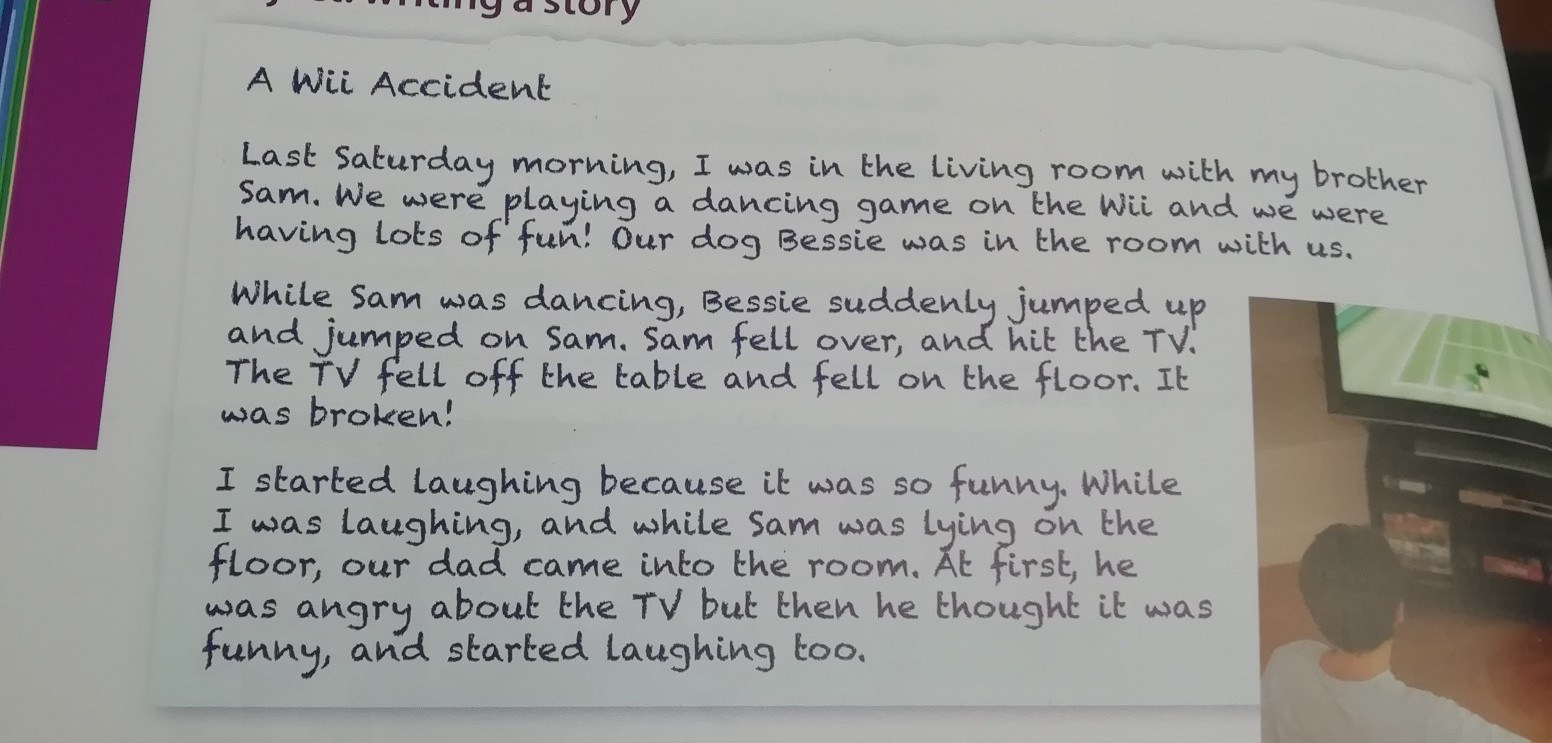 writing a story
A Wii Accident
Last Saturday morning, I was in the living room with my brother
Sam. We were playing a dancing game on the Wii and we were
having lots of fun! Our dog Bessie was in the room with us.
While Sam was dancing, Bessie suddenly jumped up
and jumped on Sam. Sam fell over, and hit the TV.
The TV fell off the table and fell on the floor. It
was broken!
I started laughing because it was so funny. While
I was laughing, and while Sam was lying on the
floor, our dad came into the room. At first, he
was angry about the TV but then he thought it was
funny, and started laughing too.